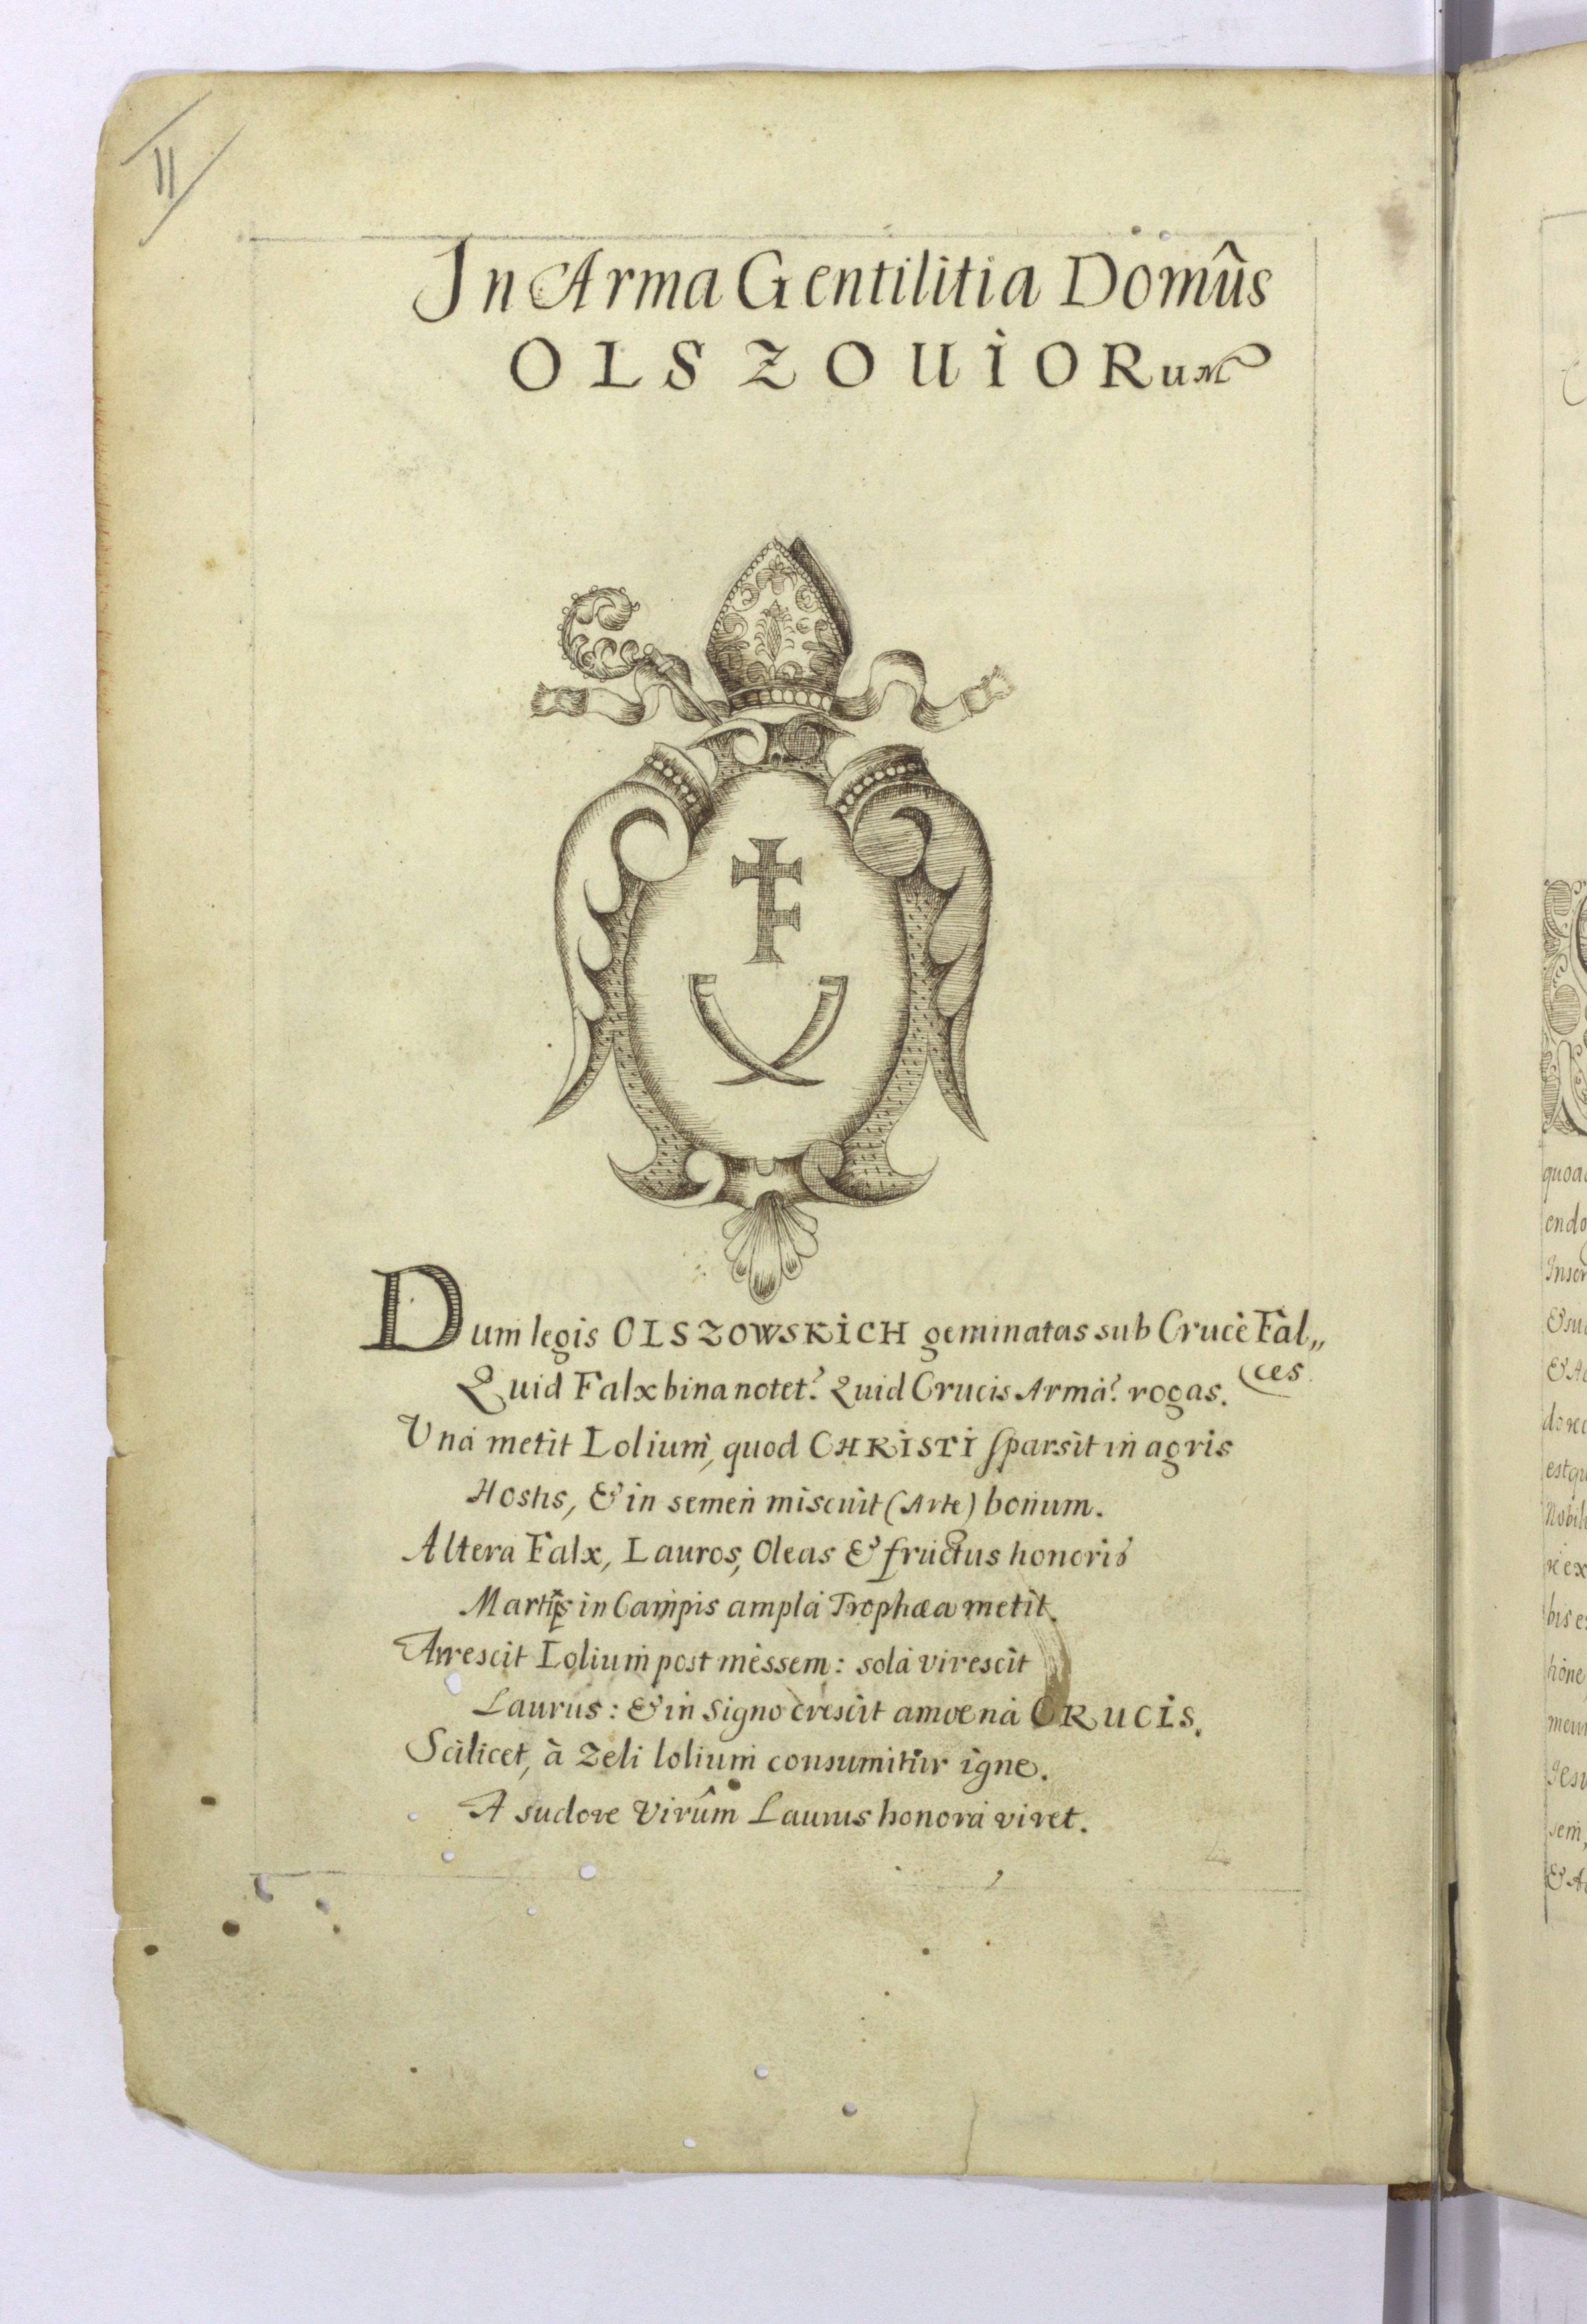 II
In Arma Gentilitia Domûs
OLSZOUIORuM
Dum legis OLSZOWSKICH geminatas sub Cruce Fal„
(ces.
Quid Falx bina notet? Quid Crucis Arma? rogas.
Una metit Lolium, quod CHRISTI sparsit in agris
Hostis, & in semen miscuit (Arte) bonum.
Altera Falx, Lauros, Oleas & fructus honoris
Martis in Campis ampla Trophæa metit.
Arrescit Lolium post messem: sola virescit
Laurus: & in Signo crescit amoena CRUCIS.
Scilicet, à Zeli lolium consumitur igne.
A sudore Virûm Laurus honora viret.
quoa
endo